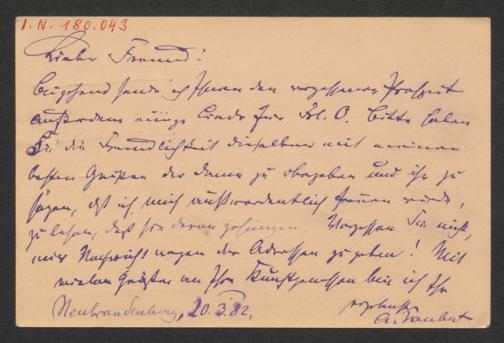 I.N. 180.043
Lieber Freund!
sende ich Ihnen den vergessenen
außerdem einige Lieder für Frl. O. Bitte haben
Sie die Freundlichkeit dieselben mit meinen
besten Grüßen der Dame zu übergeben und ihr zu
sagen, daß ich mich außerordentlich freuen würde,
zu hören, daß sie davon gesungen. Vergessen Sie nicht,
mir Nachricht wegen der Adressen zu geben! Mit
vielen Grüßen an Ihre Kunstgenossen bin ich Ihr
Neubrandenburg, 20.3.82.
A. Naubert